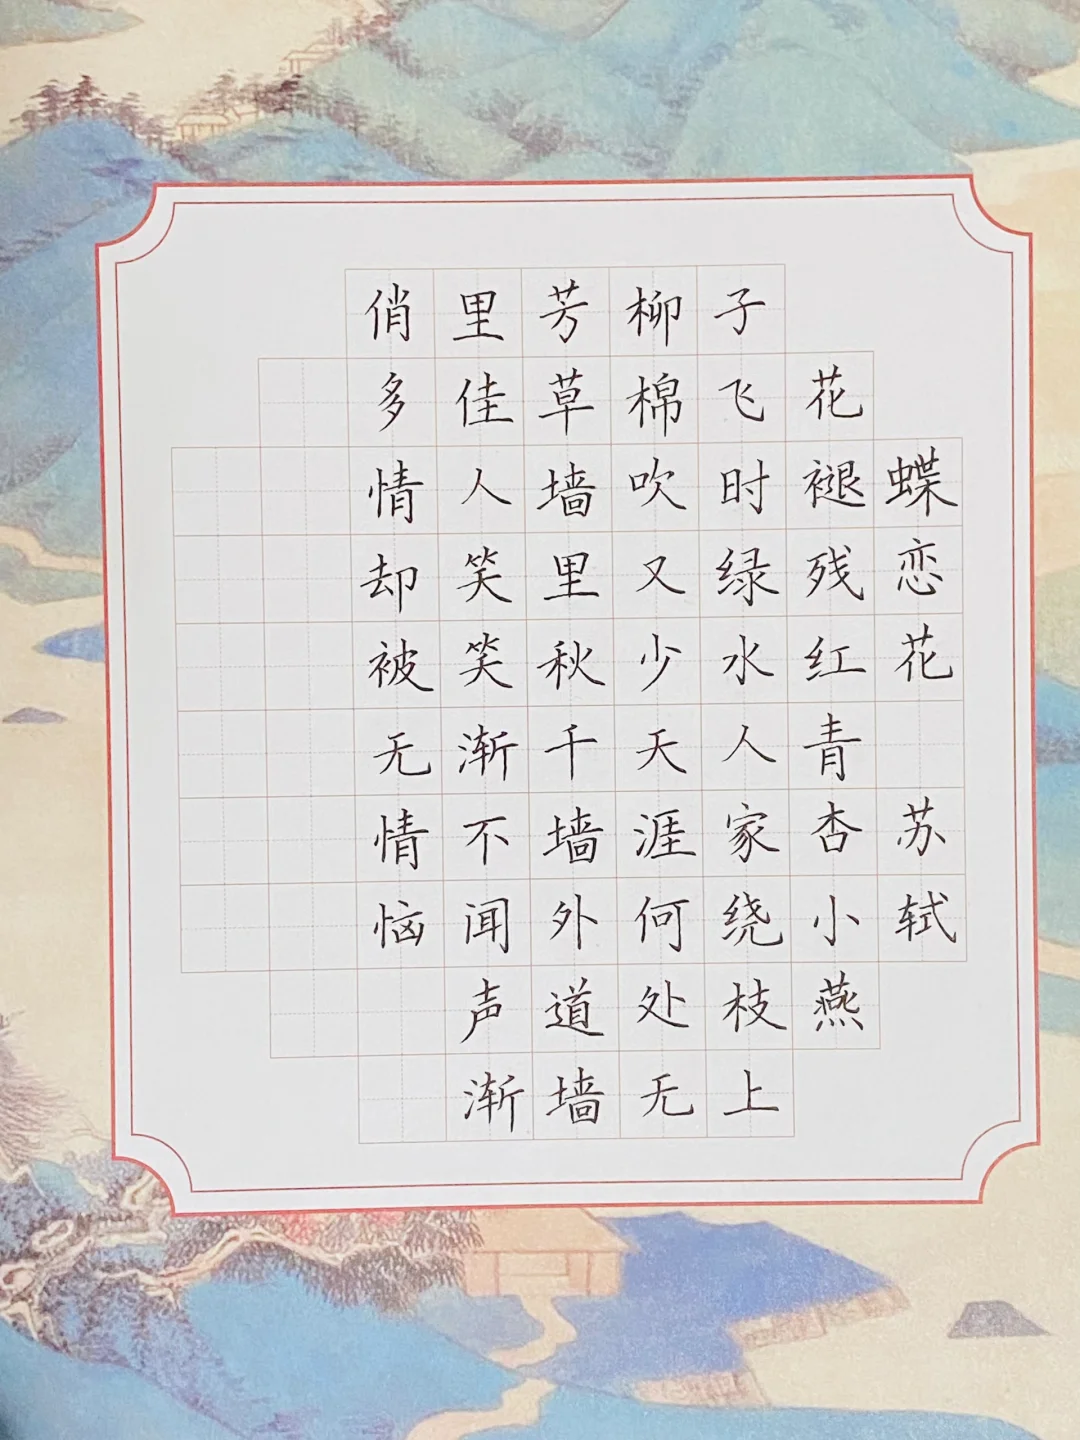 蝶恋花 苏轼
花褪残红青杏小燕
子飞时绿水人家绕枝上
柳棉吹又少天涯何处无
芳草墙里秋千墙外道墙
里佳人笑笑渐不闻声渐
俏多情却被无情恼